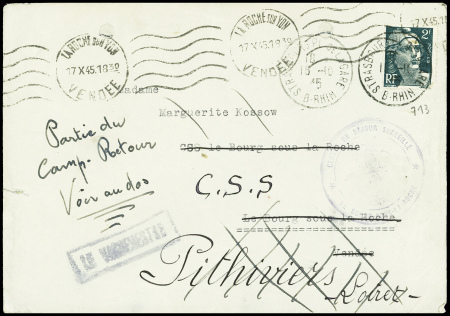 LA ROCHE SUR YON
17 X 45.18 30
VENDÉE
LA ROCHE SUR YON
17 X 45.18 30
VENDÉE
GARE
16 -10
45
B-RHIN
STRASBOURG
GARE
B-RHIN
2F
RF
713
Madame
Marguerite Kossow
CSS le Bourg sous la Roche
C.S.S
Le Bourg sous la Roche
Vendée
Partie du
Camp. Retour
Voir au dos
Pithiviers
Loiret